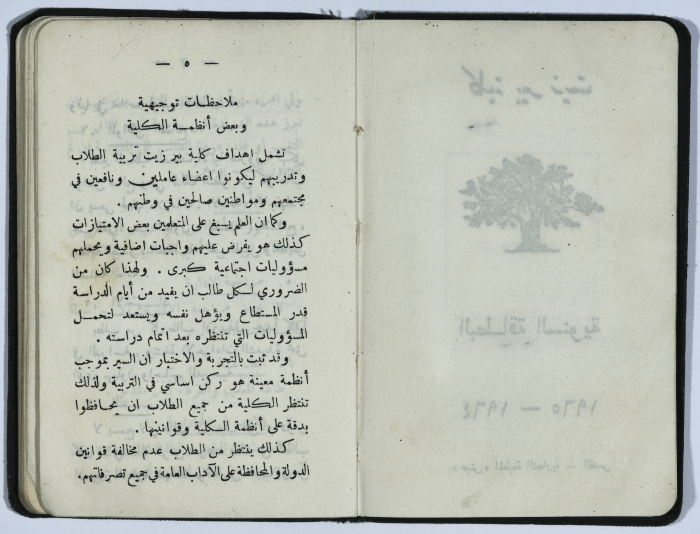 — ٥ —
ملاحظات توجيهية
وبعض أنظمة الكلية
تشمل اهداف كلية بير زيت تربية الطلاب
وتدريبهم ليكونوا اعضاء عاملين ونافعين في
مجتمعهم ومواطنين صالحين في وطنهم .
وكما ان العلم يسبغ على المتعلمين بعض الامتيازات
كذلك هو يفرض عليهم واجبات اضافية ويحملهم
مسؤوليات اجتماعية كبرى . ولهذا كان من
الضروري لكل طالب ان يفيد من أيام الدراسة
قدر المستطاع ويؤهل نفسه ويستعد لتحمل
المسؤوليات التي تنتظره بعد اتمام دراسته .
وقد ثبت بالتجربة والاختبار ان السير بموجب
أنظمة معينة هو ركن اساسي في التربية ولذلك
تنتظر الكلية من جميع الطلاب ان يحافظوا
بدقة على أنظمة الكلية وقوانينها .
كذلك ينتظر من الطلاب عدم مخالفة قوانين
الدولة والمحافظة على الآداب العامة في جميع تصرفاتهم .
كلية بير زيت
البطاقة السنوية
١٩٦٤ — ١٩٦٥